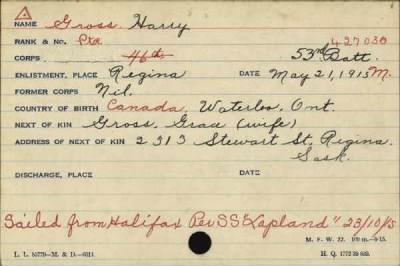 NAME Gross, Harry
RANK & No. Pte 427030
CORPS 46th 53rd Batt.
ENLISTMENT, PLACE Regina DATE May 21, 1915 M.
FORMER CORPS Nil.
COUNTRY OF BIRTH Canada, Waterloo, Ont.
NEXT OF KIN Gross, Grace (wife)
ADDRESS OF NEXT OF KIN 2313 Stewart St. Regina.
Sask.
DISCHARGE, PLACE DATE
Sailed from Halifax Per SS "Lapland" 23/10/15
M. F. W. 22. 100m.-9-15.
L. L. 55779-M. & D.-6011. H. Q. 1772-39-839.